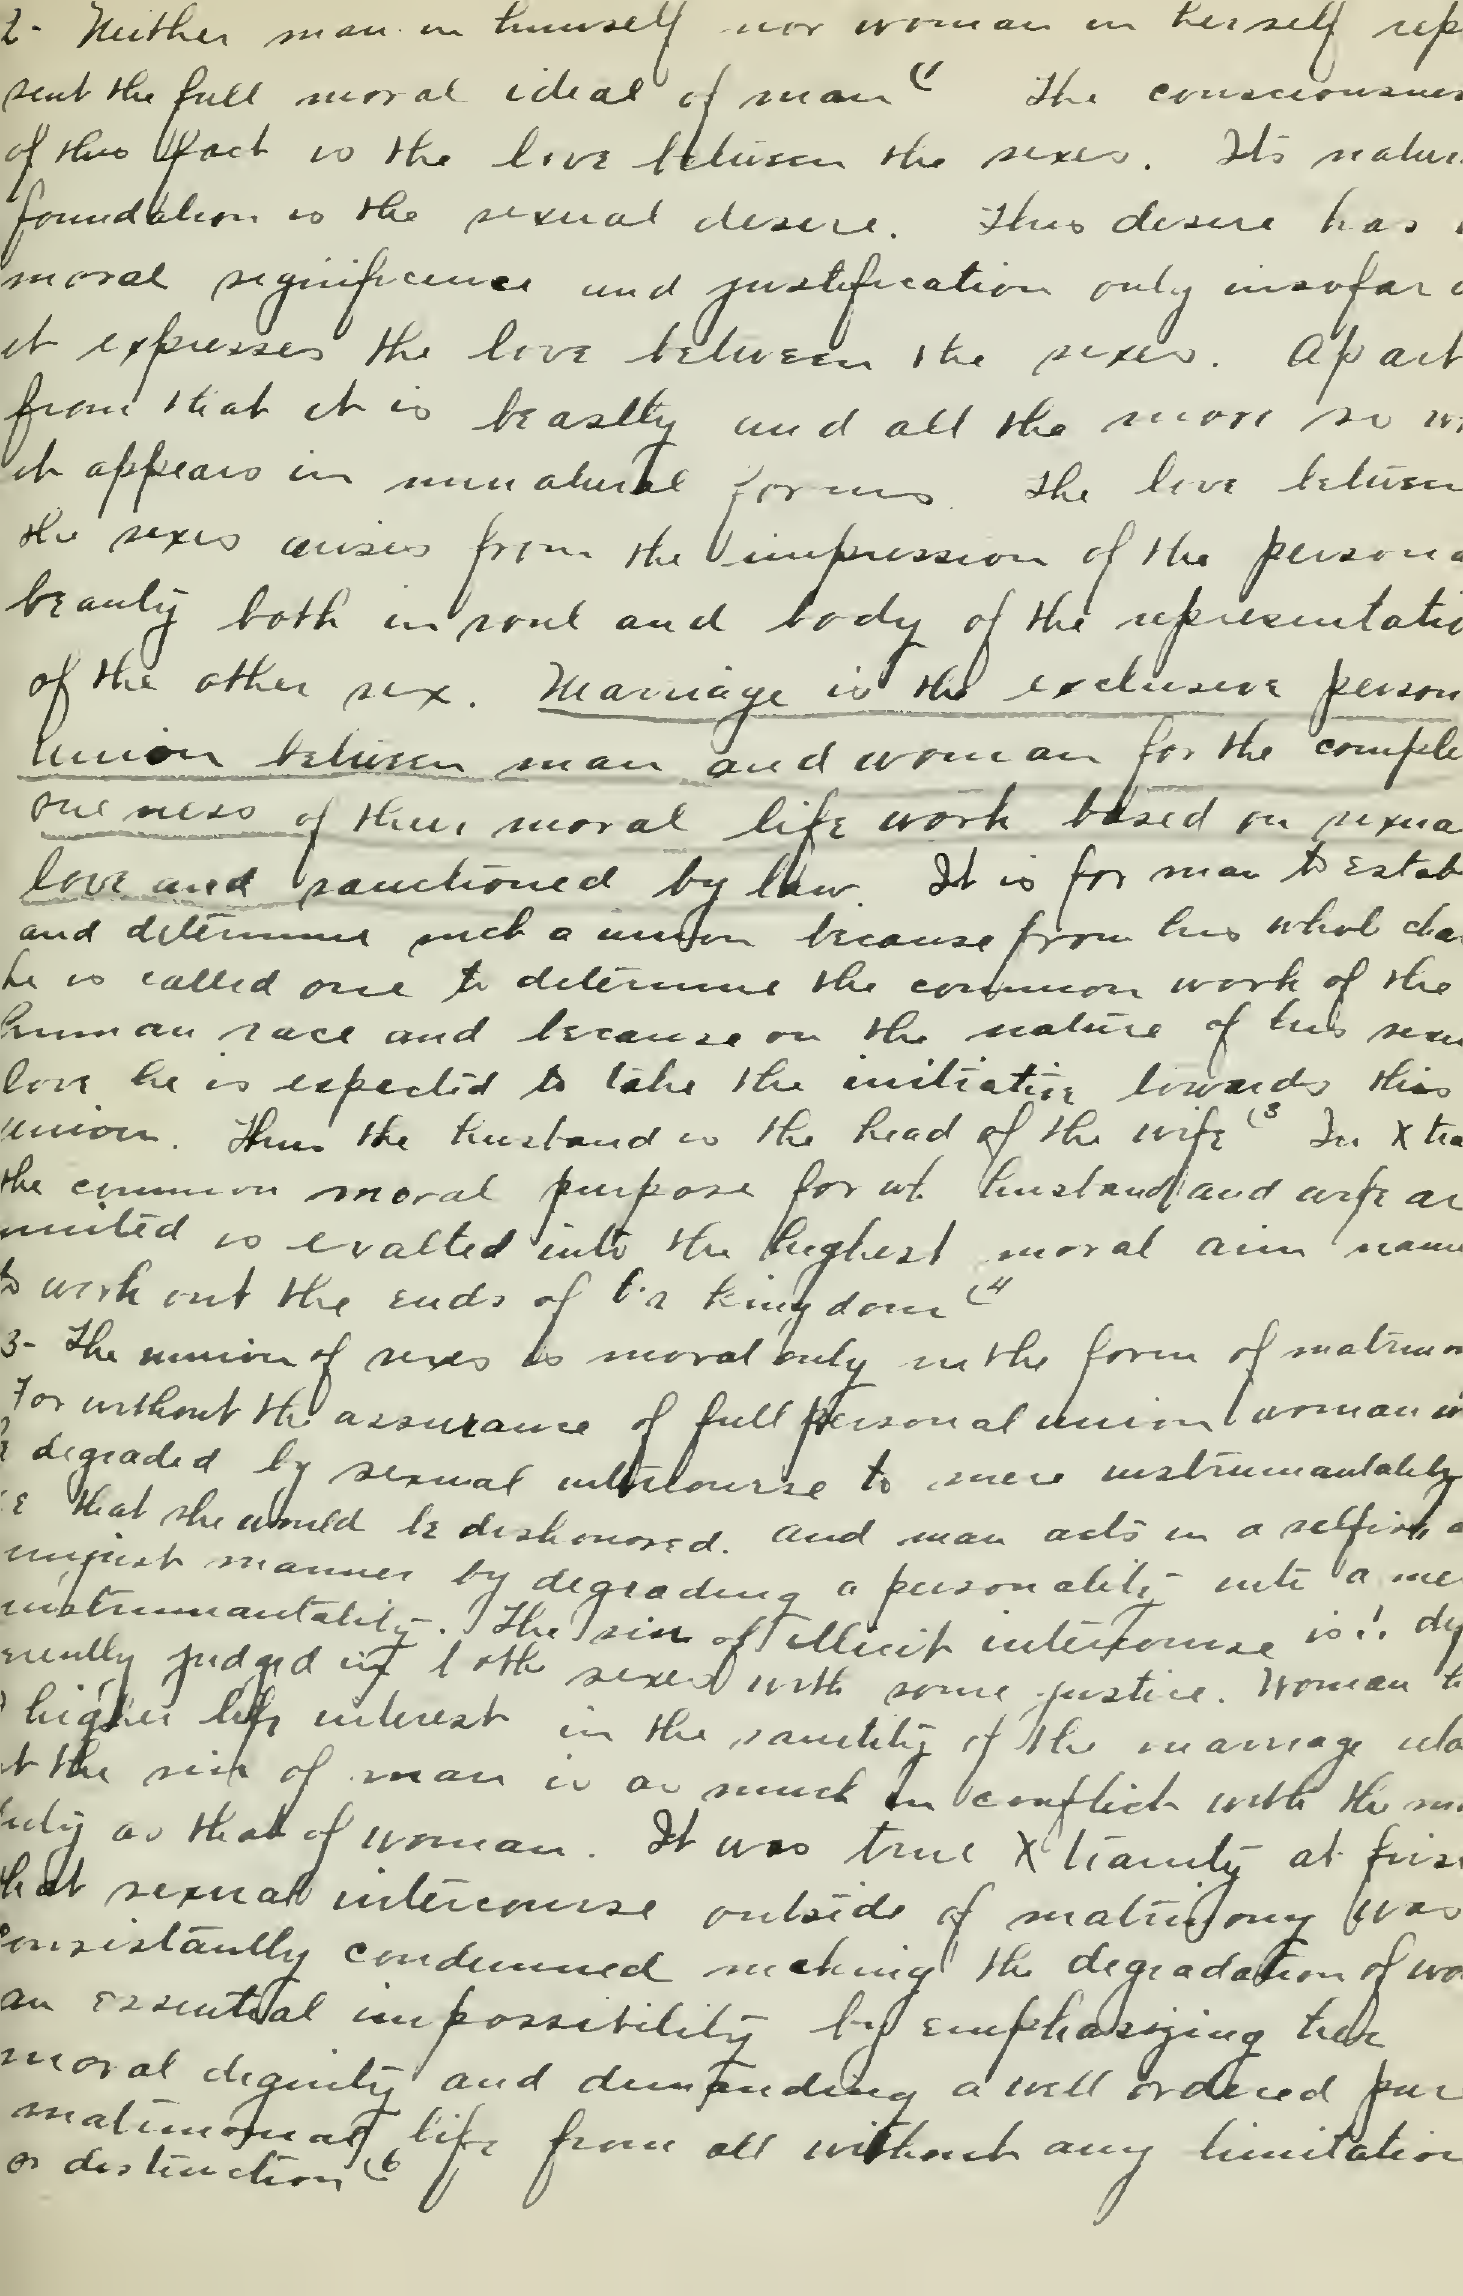 2- Neither man in himself nor woman in herself rep
sent the full moral ideal of man (1 The consciousnes
of this fact is the love between the sexes. Its natur
foundation is the sexual desire. This desire has
moral significence and justification only insofar a
it expresses the love between the sexes. Apart
from that it is beastly and all the more so w
it appears in unnatural forms. The love between
the sexes arises from the impression of the persona
beauty both in soul and body of the representati
of the other sex. Marriage is the exclusive person
union between man and woman for the comple
oneness of their moral life work based on sexua
love and sanctioned by law. It is for man to estab
and determine such a union because from his whol cha
he is called one to determine the common work of the
human race and because on the nature of his sexu
love he is expected to take the initiative towards this
union. Thus the husband is the head of the wife (3 In Xtia
the common moral purpose for wh. husband and wife ar
united is exalted into the highest moral aim name
to work out the ends of kingdom (4
3- The union of sexes is moral only in the form of matrimon
For without the assurance of full personal union woman w
degraded by sexual intercourse to mere instrumantality
i.e that she would be dishonored. And man acts in a selfish a
unjust manner by degrading a personality into a me
instrumantality. The sin of illicit intercourse is
rently judged in both sexes with some justice. Woman
higher life interest in the sanctity of the marriage
t the sin of man is as much in conflict with the
uty as that of woman. It was true Xtianity at firs
that sexual intercourse outside of matrimony was
consistantly condemned making the degradation of wo
an essential impossibility by emphasizing her
moral dignity and demanding a well ordered pur
matrimonal life from all without any limitation
or distinction (6